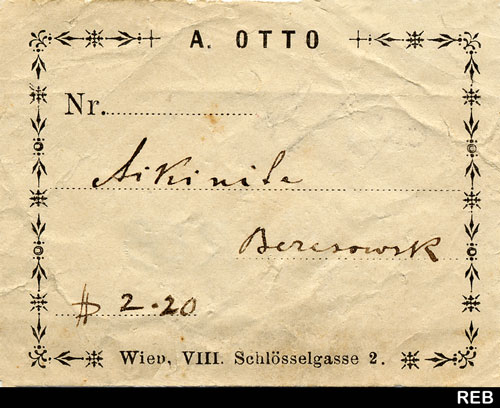 A. OTTO
Nr.
Aikinite
Beresowsk
$ 2.20
Wien, VIII. Schlösselgasse 2.
REB